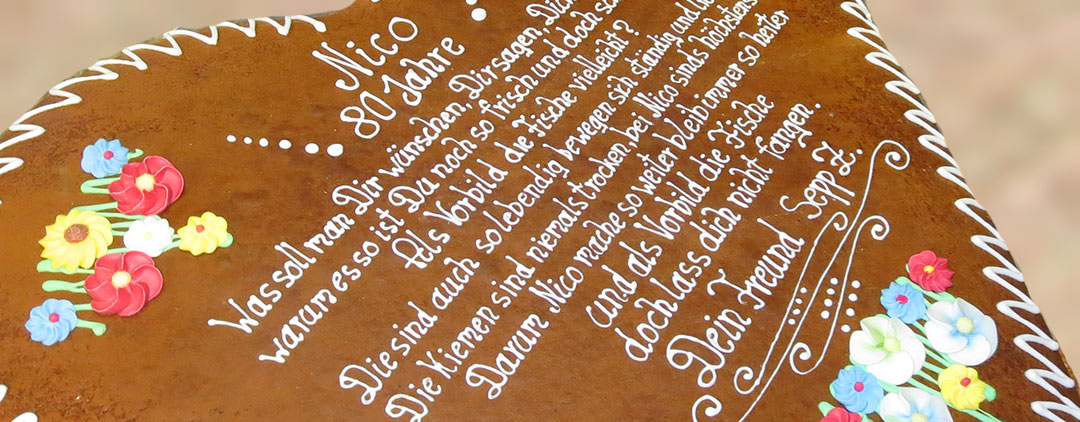 Nico
80 Jahre
Was soll man Dir wünschen, Dir sagen, Dich
warum es so ist Du noch so frisch und doch
Als Vorbild die Fische vielleicht?
Die sind auch so lebendig bewegen sich ständig und
Die Kiemen sind niemals trocken, bei Nico sinds höchstens
Darum Nico mache so weiter bleib immer so heiter
und als Vorbild die Fische
doch lass dich nicht fangen.
Dein Freund Sepp Z.